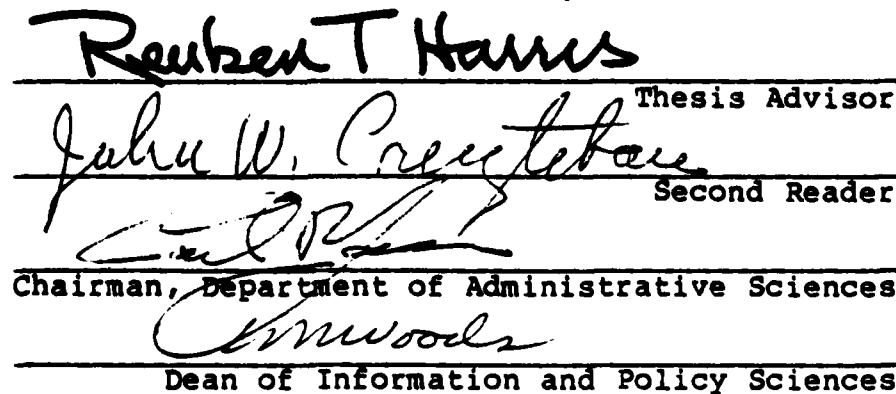 Reuben T Harris
Thesis Advisor
John W. Creighton
Second Reader
Chairman, Department of Administrative Sciences
Dean of Information and Policy Sciences